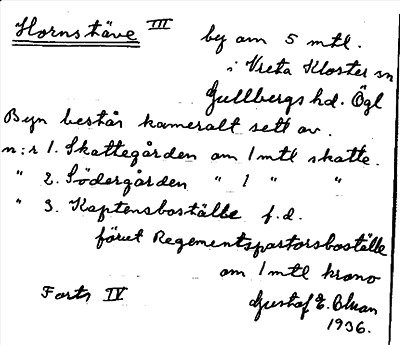 Hornstäve III by om 5 mtl.
i Vreta Kloster sn
Gullbergs hd. Ögl
Byn består kameralt sett av.
n:r 1. Skattegården om 1 mtl skatte.
" 2. Södergården " 1 " "
" 3. Kaptensboställe f.d.
förut Regementspastorsboställe
om 1 mtl krono
Forts IV Gustaf E. Bluan
1936.